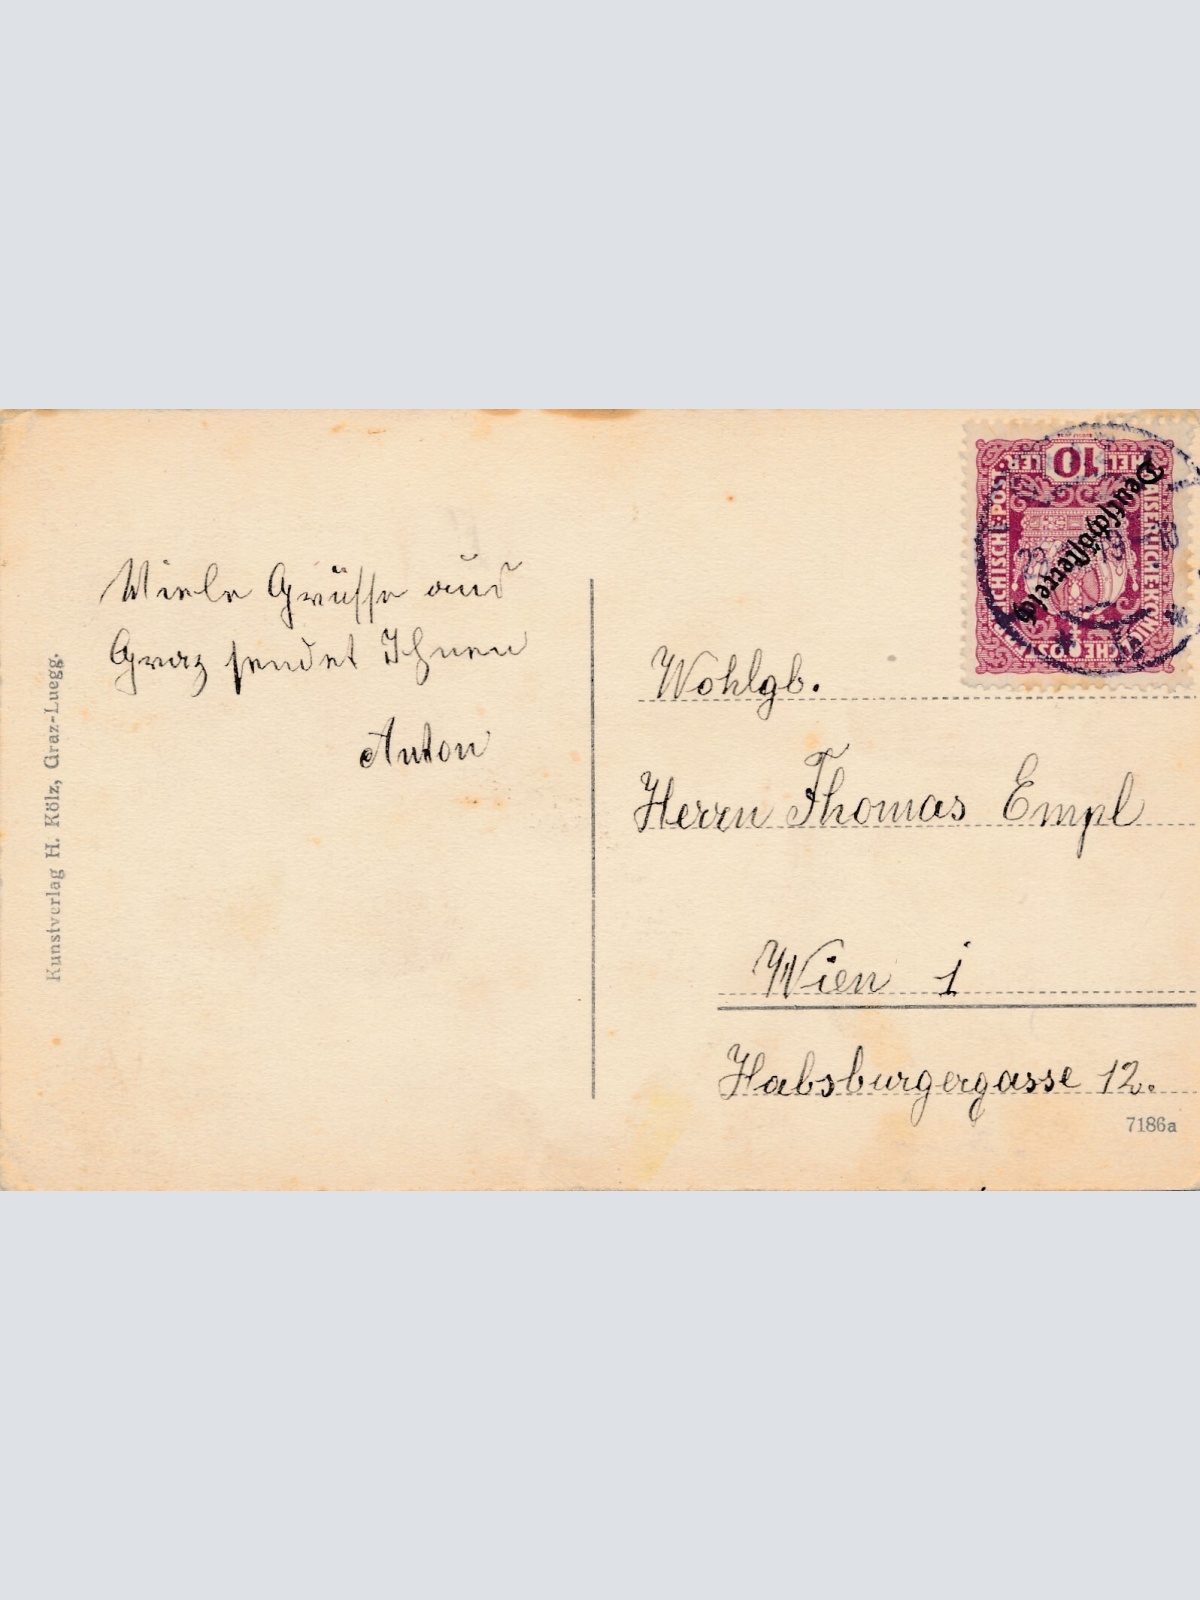 Viele Grüsse aus
Graz sendet Ihnen
Anton
Kunstverlag H. Kölz, Graz-Luegg.
10
HEL LER
Deutschösterreich
Wohlgb.
Herrn Thomas Empl
Wien 1
Habsburgergasse 12.
7186a